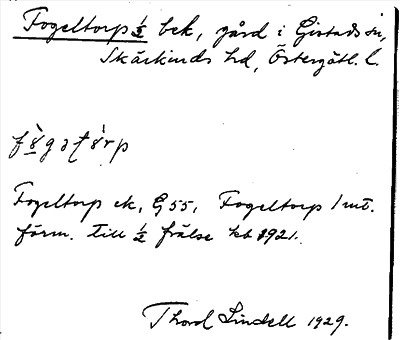 Fogeltorp ½ bek, gård i Gistads sn,
Skärkinds hd, Östergötl. l.
Fogeltorp ek, G 55, Fogeltorp 1 mt.
förm. till ½ frälse kb 1921.
Thord Lindell 1929.